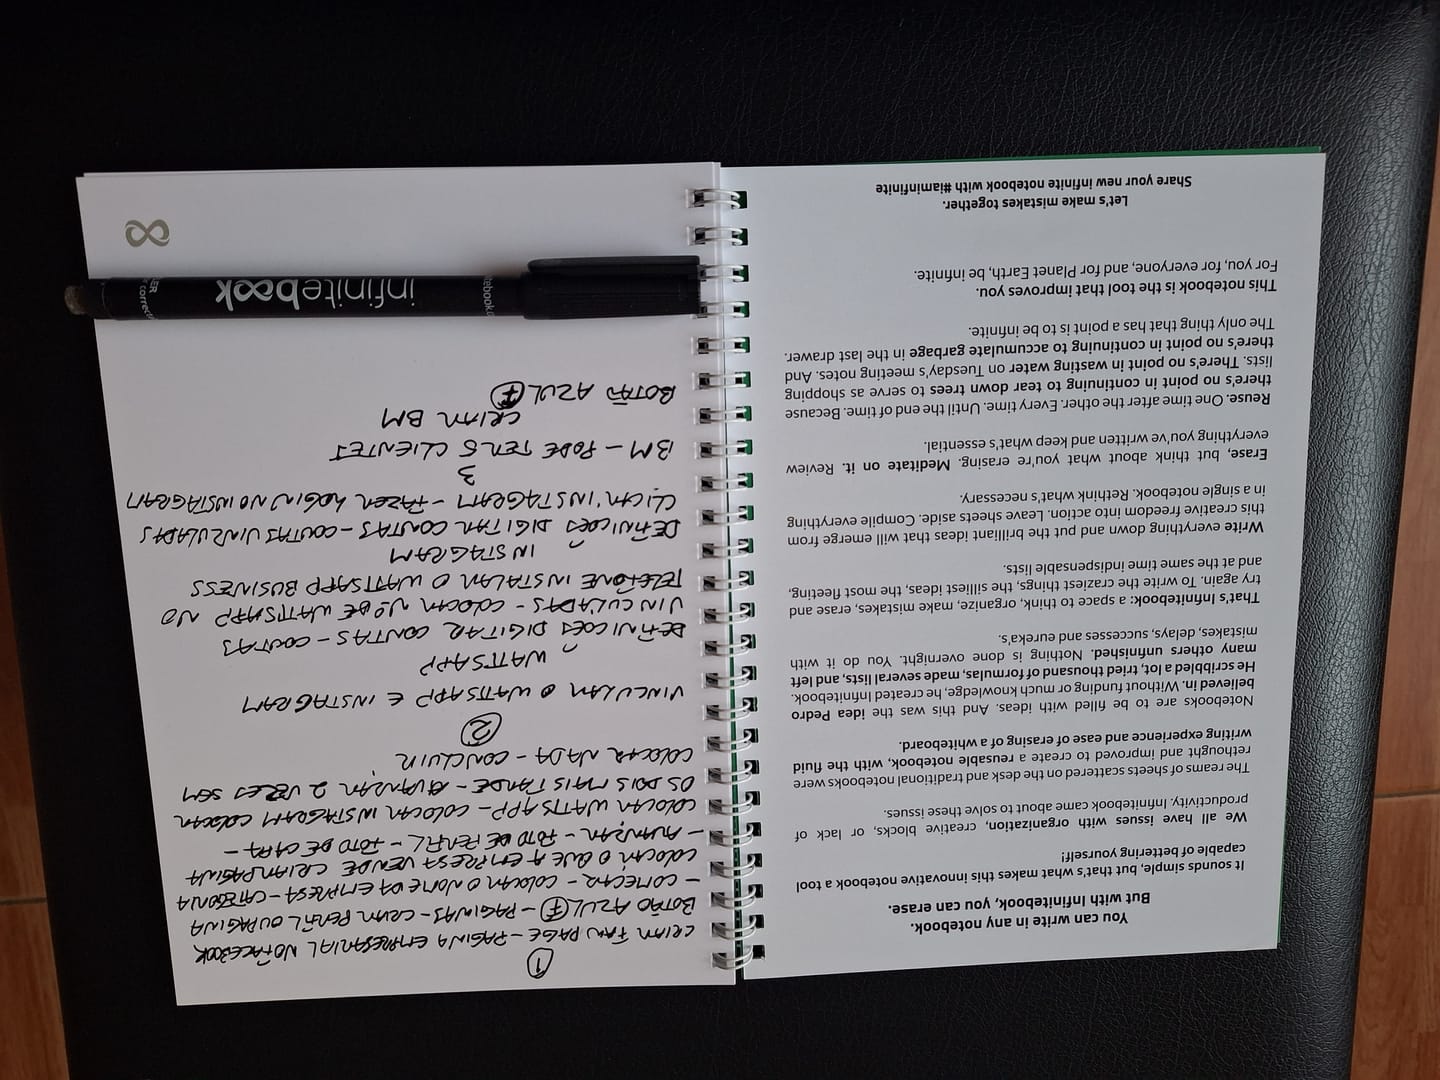 You can write in any notebook.
But with Infinitebook, you can erase.
It sounds simple, but that's what makes this innovative notebook a tool
capable of bettering yourself!
We all have issues with organization, creative blocks, or lack of
productivity. Infinitebook came about to solve these issues.
The reams of sheets scattered on the desk and traditional notebooks were
rethought and improved to create a reusable notebook, with the fluid
writing experience and ease of erasing of a whiteboard.
Notebooks are to be filled with ideas. And this was the idea Pedro
believed in. Without funding or much knowledge, he created Infinitebook.
He scribbled a lot, tried thousand of formulas, made several lists, and left
many others unfinished. Nothing is done overnight. You do it with
mistakes, delays, successes and eureka's.
That's Infinitebook: a space to think, organize, make mistakes, erase and
try again. To write the craziest things, the silliest ideas, the most fleeting,
and at the same time indispensable lists.
Write everything down and put the brilliant ideas that will emerge from
this creative freedom into action. Leave sheets aside. Compile everything
in a single notebook. Rethink what's necessary.
Erase, but think about what you're erasing. Meditate on it. Review
everything you've written and keep what's essential.
Reuse. One time after the other. Every time. Until the end of time. Because
there's no point in continuing to tear down trees to serve as shopping
lists. There's no point in wasting water on Tuesday's meeting notes. And
there's no point in continuing to accumulate garbage in the last drawer.
The only thing that has a point is to be infinite.
This notebook is the tool that improves you.
For you, for everyone, and for Planet Earth, be infinite.
Let's make mistakes together.
Share your new infinite notebook with #iaminfinite
1
CRIAR FAN PAGE - PAGINA EMPRESARIAL NO FACEBOOK
BOTÃO AZUL F - PAGINAS - CRIAR PERFIL OU PAGINA
- COMEÇAR - COLOCAR O NOME DA EMPRESA - CATEGORIA
COLOCAR O QUE A EMPRESA VENDE CRIAR PAGINA
- AVANÇAR - FOTO DE PERFIL - FOTO DE CAPA -
COLOCAR WATTSAPP - COLOCAR INSTAGRAM COLOCAR
OS DOIS MAIS TARDE - AVANÇAR 2 VEZES SEM
COLOCAR NADA - CONCLUIR
2
VINCULAR O WATTSAPP E INSTAGRAM
WATTSAPP
DEFINIÇÕES DIGITAR CONTAS - CONTAS
VINCULADAS - COLOCAR Nº DE WATTSAPP NO
TELEFONE INSTALAR O WATTSAPP BUSINESS
INSTAGRAM
DEFINIÇÕES DIGITAR CONTAS - CONTAS VINCULADAS
CLICAR INSTAGRAM - FAZER LOGIN NO INSTAGRAM
3
BM - PODE TER 5 CLIENTES
CRIAR BM
BOTÃO AZUL F
infinitebook